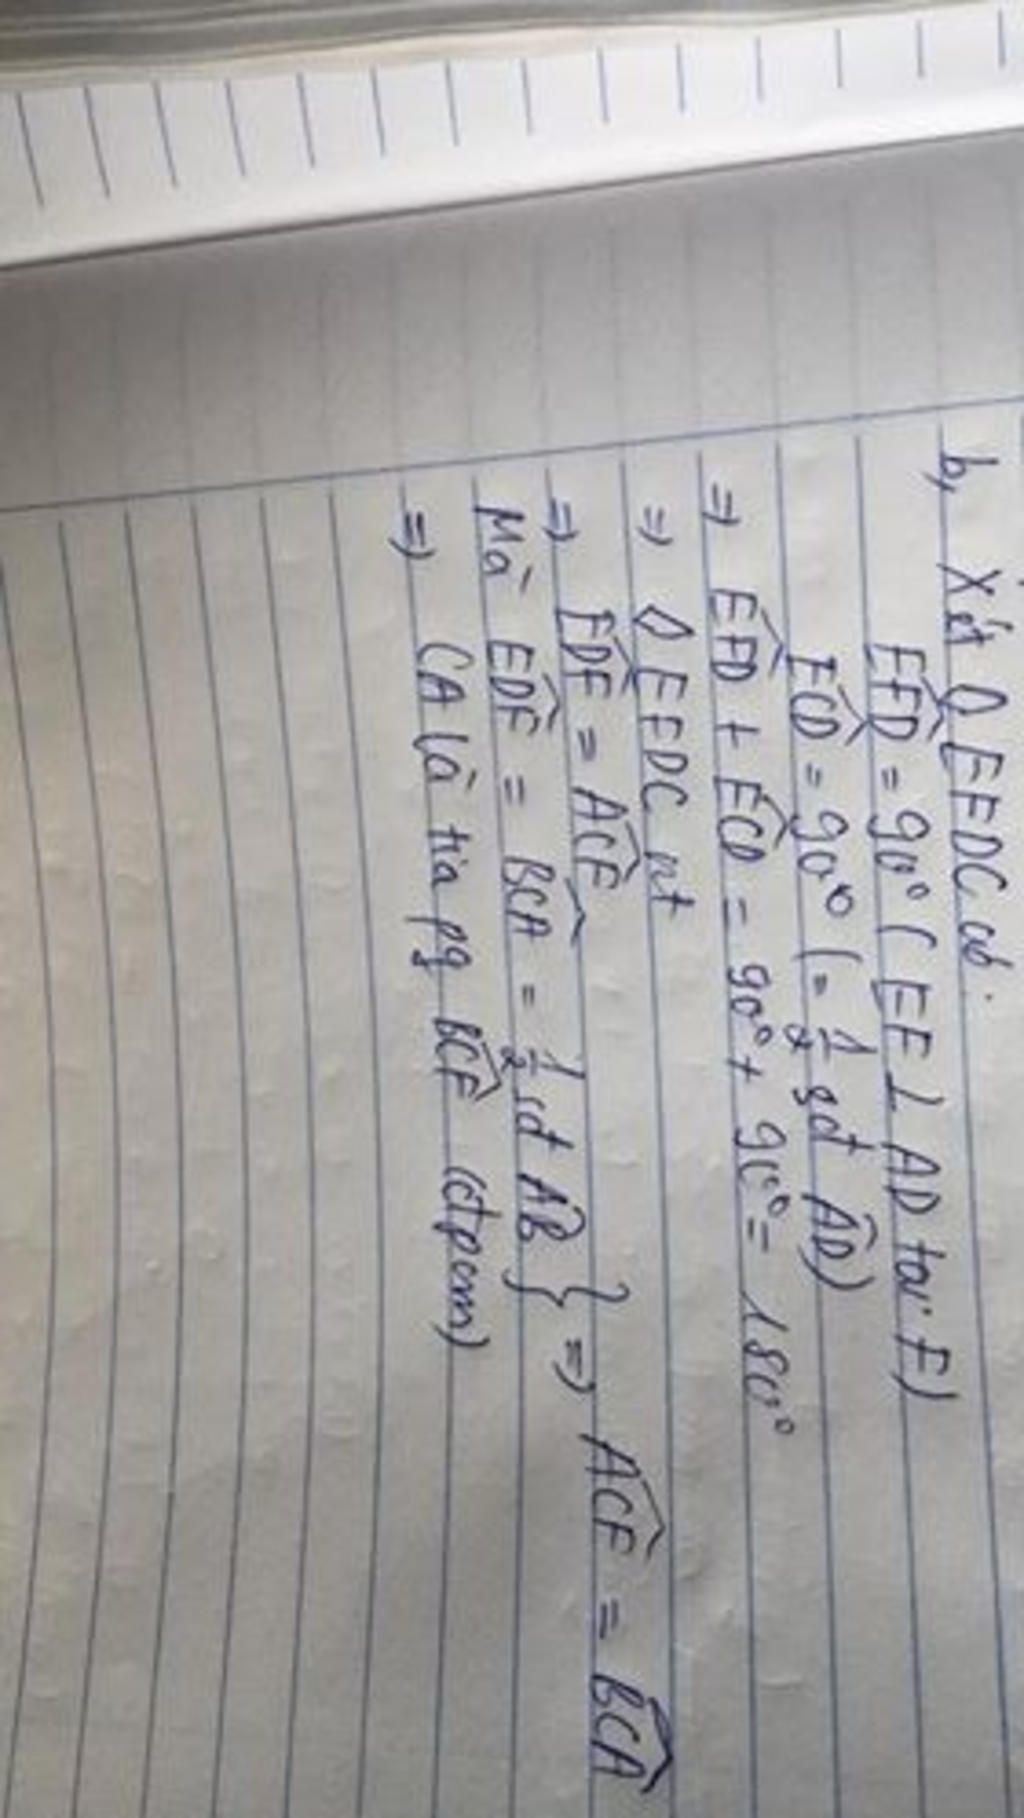 b, Xét ◊ EFDC có:
EFD̂ = 90° ( EF ⊥ AD tại F)
ECD̂ = 90° (= 1/2 sđ AD̂)
=> EFD̂ + ECD̂ = 90° + 90° = 180°
=> ◊ EFDC nt
=> EDF̂ = ACF̂
Mà EDF̂ = BCÂ = 1/2 sđ AB̂ } => ACF̂ = BCÂ
=> CA là tia pg BCF̂ (đpcm)